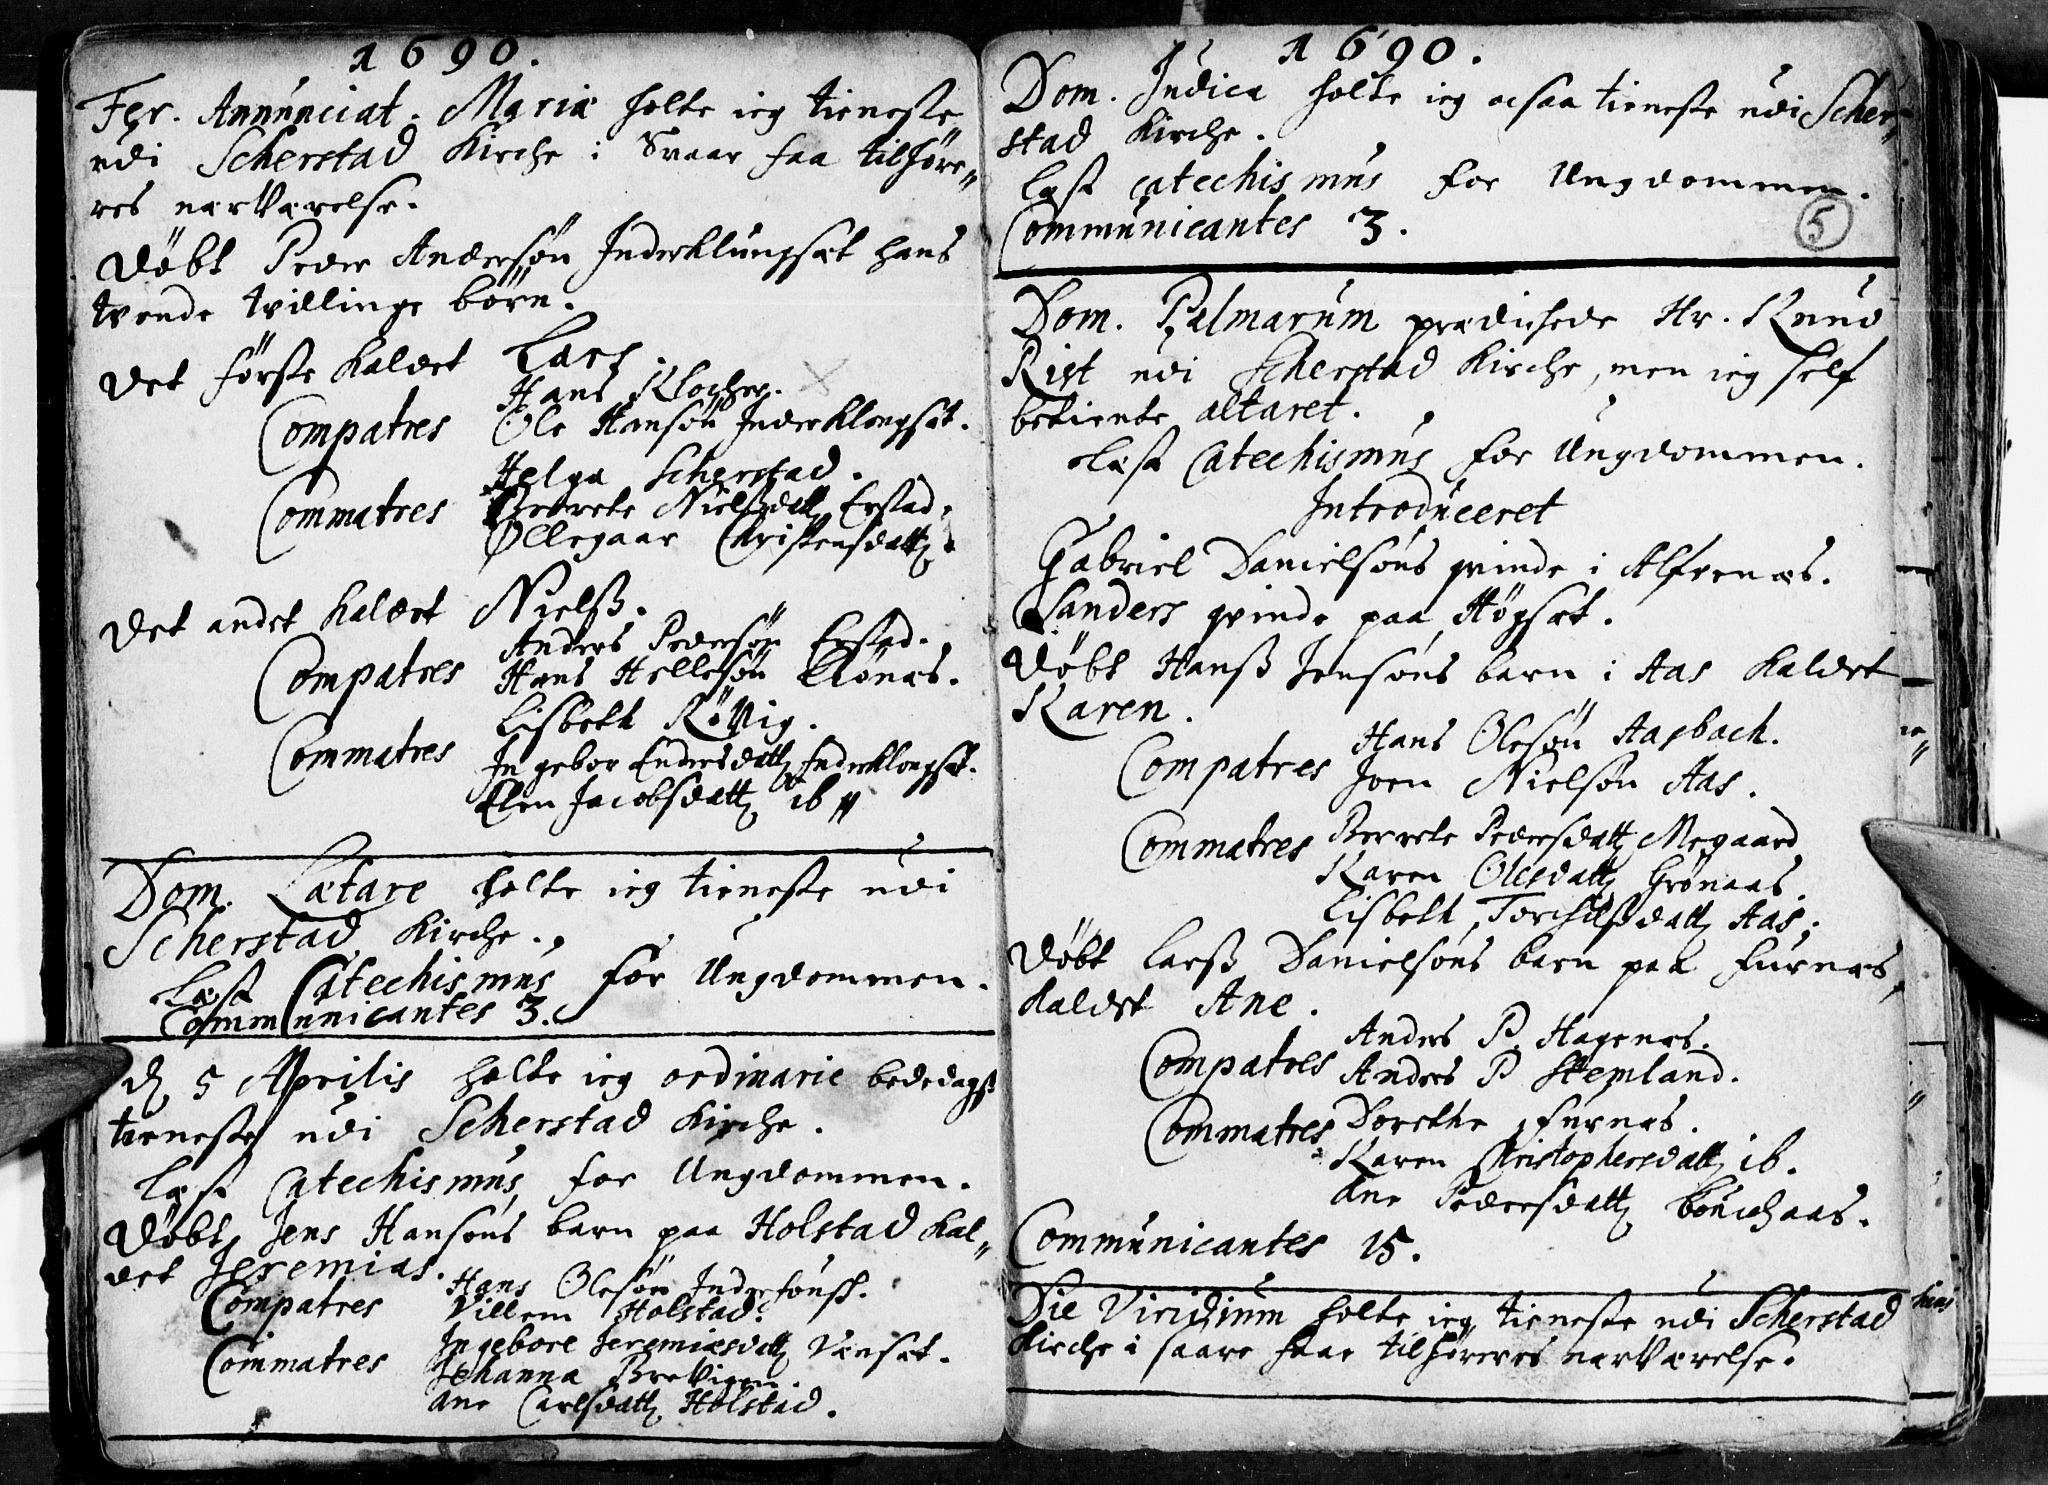 1690.
Fer. Annunciat. Mariæ holte ieg tieneste
udi Scherstad Kirche i Svaar faa tilhøre„
res nærværelse.
Døbt Peder Andersøn Inderklungset hans
tvende tvillinge börn.
Det förste kaldet Lars
Hans Klocher.
Compatres Ole Hansøn Inderklongset.
Helge Scherstad.
Commatres Berrete Nielsdatt Erstad.
Øllegaar Christensdatt.
Det andet kaldet Nielß.
Anders Pedersøn Erstad.
Compatres Hans Hellesøn Elvönæs.
Lisbeth Rövig.
Commatres Ingebor Endersdatt Inderklongset.
Elen Jacobsdatt ib„
Dom. Lætare holte ieg tieneste udi
Scherstad Kirche.
Læst Catechismus for Ungdommen.
Communicantes 3.
d. 5 Aprilis holte ieg ordinarie bededags
tieneste udi Scherstad Kirche.
Læst Catechismus for Ungdommen.
Døbt Jens Hansøns barn paa Holstad kal„
det Jeremias.
Hans Olesøn
Compatres Villem Holstad.
Ingebore Jeremiæsdatt Vænset.
Commatres Johanna Brevigen.
Ane Carlsdatt Holstad.
1690.
Dom. Judica holte ieg ocsaa tieneste udi Scher„
stad Kirche.
Læst catechismus for Ungdommen.
Communicantes 3.
5
Dom. Palmarum prædichede Hr. Knud
Rist udi Scherstad Kirche, men ieg self
betiente altaret.
Læst Catechismus for Ungdommen.
Introduceret
Gabriel Danielsøns qvinde i Alfvenæs.
Sanders qvinde paa Høgset.
Døbt Hanß Jensøns barn i Aas kaldet
Karen.
Hans Olesøn Aasbach.
Compatres Joen Nielsøn Aas.
Commatres Berrete Pedersdatt Megaard
Karen Olesdatt Grønaas.
Lisbeth Torchilßdatt Aas.
Døbt Larß Danielsøns barn paa Furnæs,
kaldet Ane.
Anders P. Hagenæs.
Compatres Anders P Stemland.
Commatres Dorethe Furnæs.
Karen Christophersdatt ib.
Ane Pedersdatt
Communicantes 15.
Die Viridium holte ieg tieneste udi Scherstad
Kirche i saare faae tilhøreres nærværelse.